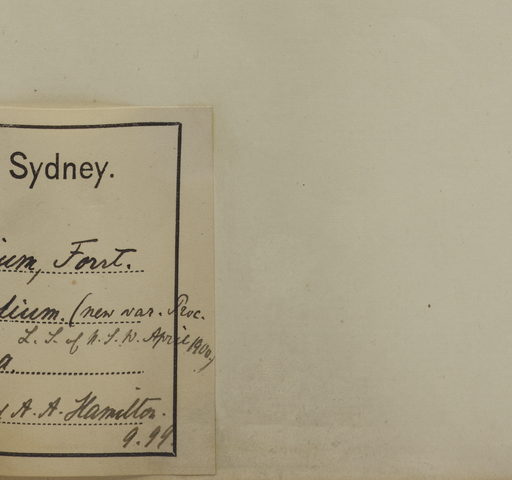 Sydney.
ium, Forst.
dium. (new var. Proc.
L. S. of N. S. W. April 1900)
a
A. A. Hamilton.
9.99